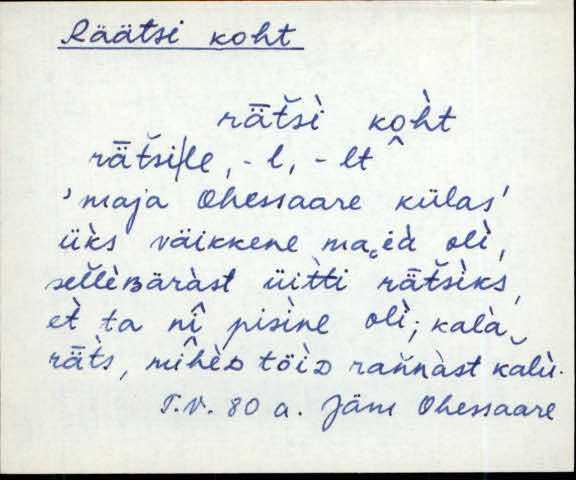 Räätsi koht
rǟtšì ko̭h̀t
rǟtši|le, -l, -lt
'maja Ohessaare külas'
üks väikkene ma i̯à olì,
sellèʙäràst üìtti rǟtšìks,
et̀ ta nî pisìne olì; kalà
rǟts, mîhèᴅ tõìᴅ rannàst kalù.
T.V. 80 a. Jäm Ohessaare